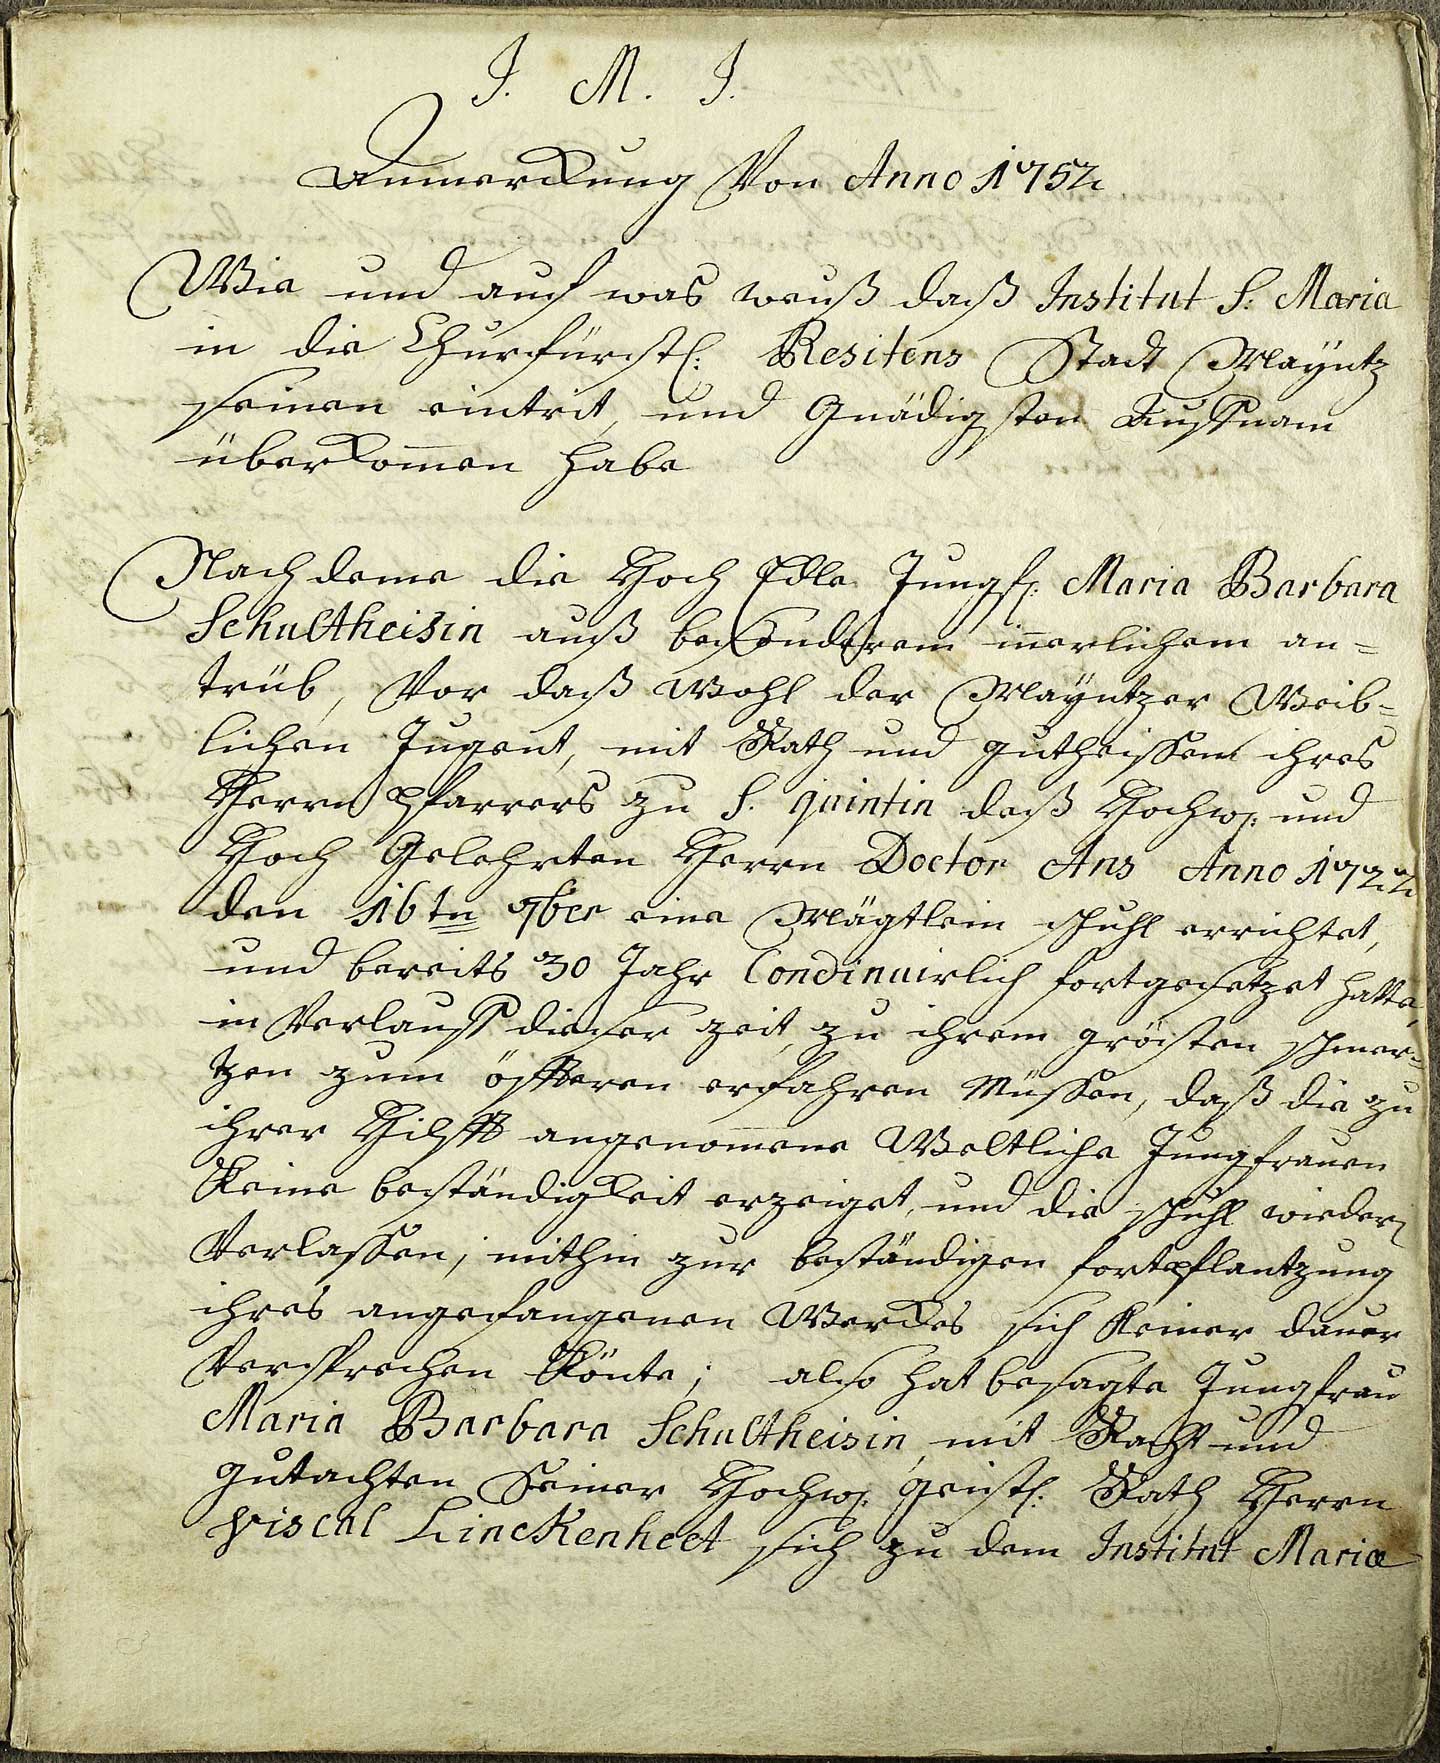 J. M. J.
Anmerckung Von Anno 1752
Wie und auch was weiß daß Institut S: Maria
in die Churfürstl: Resitens Stadt Mayntz
seinen eintrit, und Gnädigsten Auffnam
überkom̄en habe
Nach deme die Hoch Edle Jungf: Maria Barbara
Schultheisin auß besonderem in̄erlichem an=
trüb, Vor daß Wohl der Mayntzer Weib=
lichen Jugent, mit Rath und gutheissen ihres
Herrn Pfarrers zu S. quintin deß Hochw: und
Hoch Gelehrten Herrn Doctor Ans Anno 1722
den 16tn 9ber eine Mägtlein schuhl errichtet,
und bereits 30 Jahr Condinuirlich fortgesetzet hatte,
in Verlauff dieser zeit, zu ihrem grösten schmer=
tzen zum öffteren erfahren Müssen, daß die zu
ihrer Hilff angenom̄ene Weltliche Jungfrauen
Keine beständigkeit erzeiget, und die schuhl wieder
Verlassen; mithin zur beständigen fortpflantzung
ihres angefangenen Werckes sich Keiner dauer
Versprechen Könte; also hat besagte Jungfrau
Maria Barbara Schultheisin, mit Rath und
gutachten Seiner Hochw: Geistl: Rath Herrn
Viscal Linckenheet sich zu dem Institut Mariae